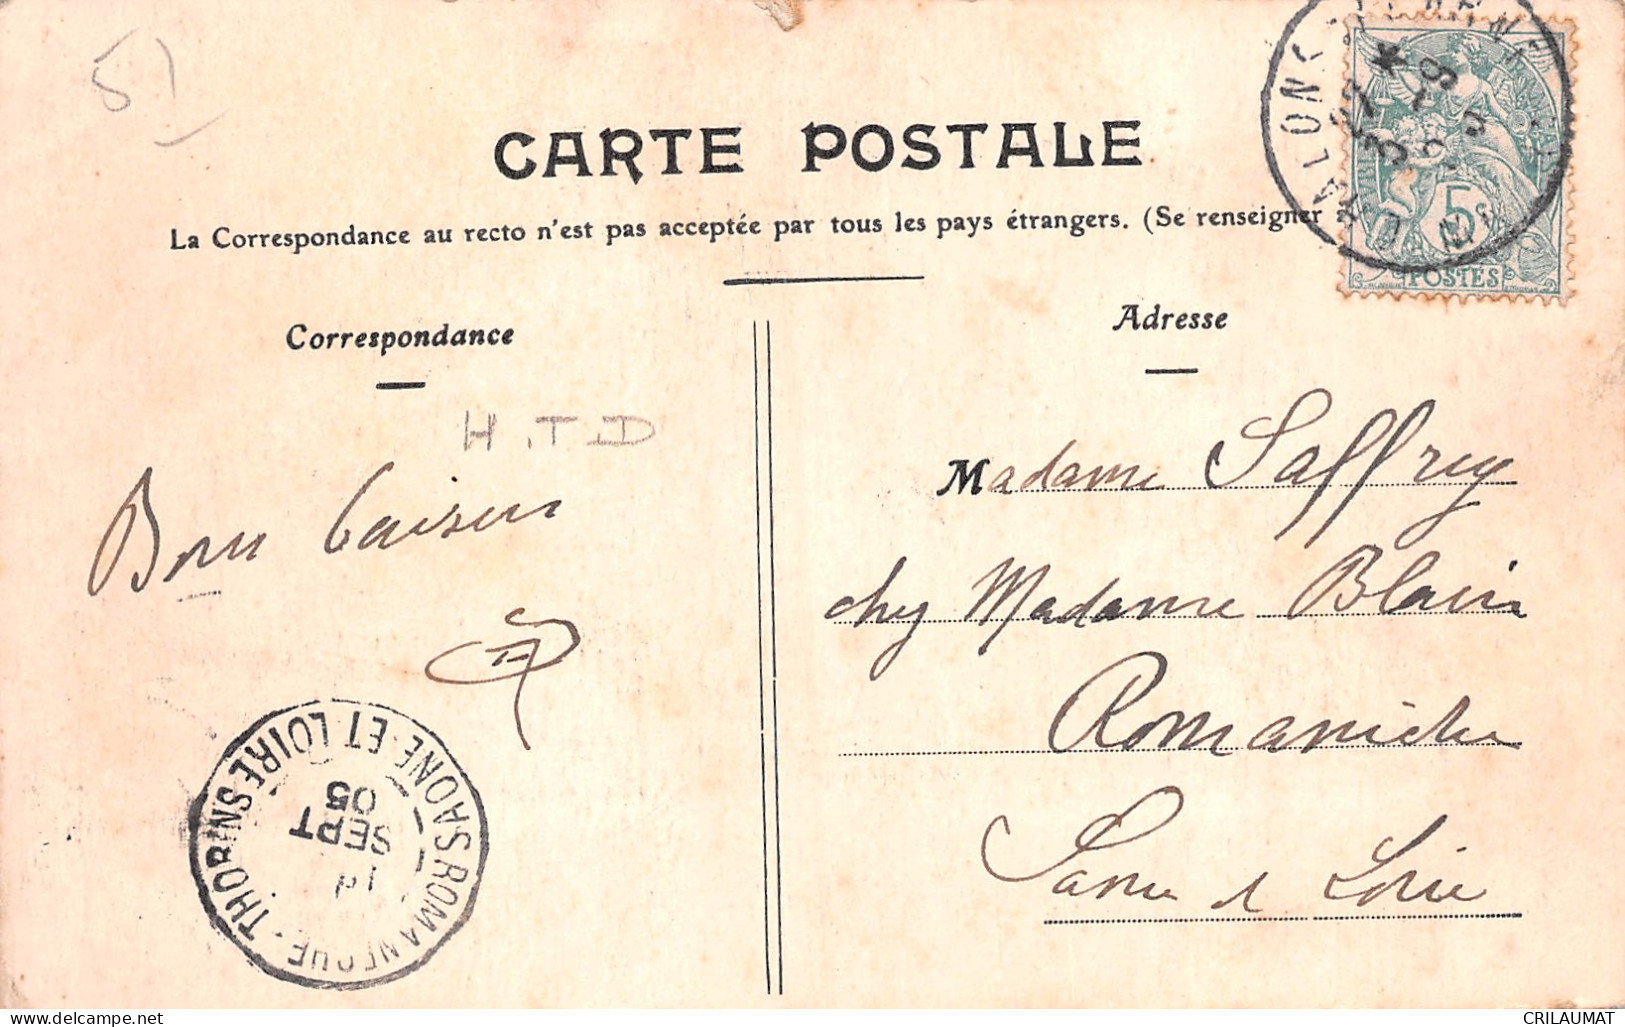 51
CARTE POSTALE
La Correspondance au recto n'est pas acceptée par tous les pays étrangers. (Se renseigner
5c
POSTES
Correspondance
Adresse
H.T.D
Bons baisers
Madame Saffrey
chez Madame Blain
Romanèche
Saône & Loire
ROMANECHE-THORINS
SAONE-ET-LOIRE
SEPT
05
CRILAUMAT